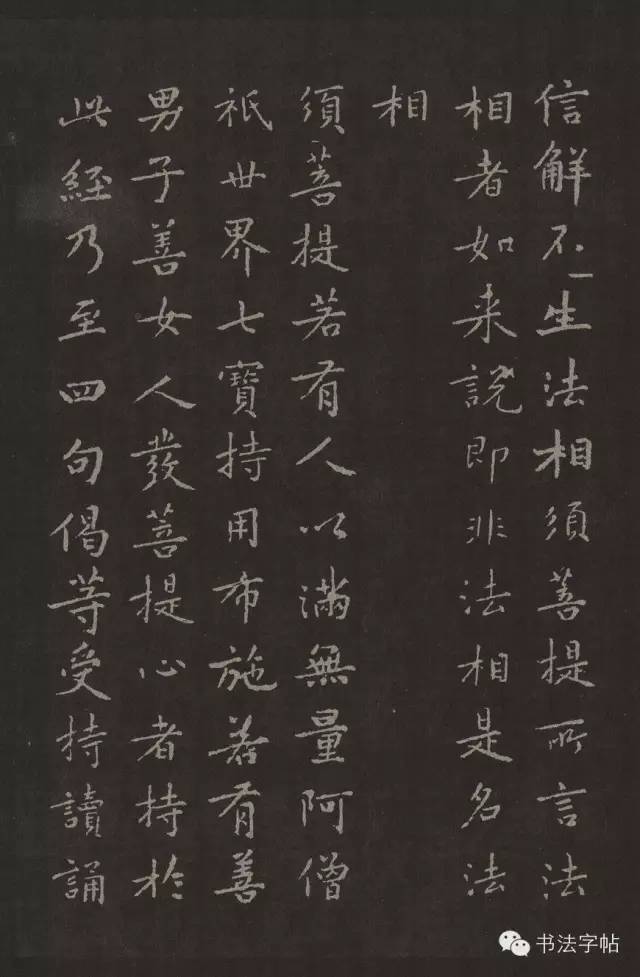 信解不生法相須菩提所言法
相者如来說即非法相是名法
相
須菩提若有人以滿無量阿僧
祇世界七寶持用布施若有善
男子善女人發菩提心者持於
此經乃至四句偈等受持讀誦
书法字帖